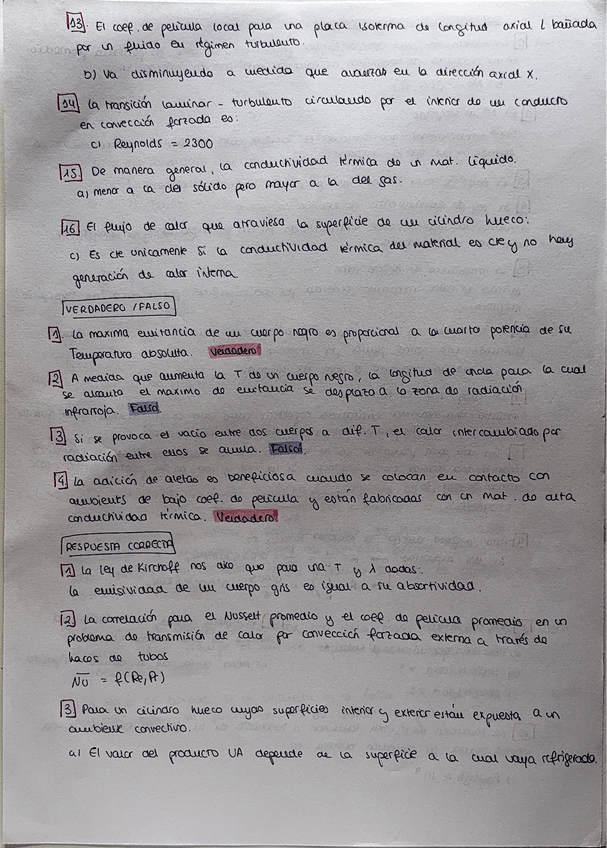 13. El coef. de película local para una placa isoterma de longitud axial L bañada
por un fluido en régimen turbulento.
b) Va disminuyendo a medida que avanzas en la dirección axial x.
14 La transición laminar - turbulento circulando por el interior de un conducto
en convección forzada es:
c) Reynolds = 2300
15. De manera general, la conductividad térmica de un mat. líquido.
a) menor a la del sólido pero mayor a la del gas.
16 El flujo de calor que atraviesa la superficie de un cilindro hueco:
c) Es cte unicamente si la conductividad térmica del material es cte y no hay
generación de calor interna
VERDADERO / FALSO
1. La maxima emitancia de un cuerpo negro es proporcional a la cuarta potencia de su
Temperatura absoluta. Verdadero!
2 A medida que aumenta la T de un cuerpo negro, la longitud de onda para la cual
se alcanza el maximo de emitancia se desplaza a la zona de radiación
infrarroja. Falso
3 Si se provoca el vacio entre dos cuerpos a dif. T, el calor intercambiado por
radiación entre ellos se anula. Falso!
4 La adición de aletas es beneficiosa cuando se colocan en contacto con
ambients de bajo coef. de película y están fabricadas con un mat. de alta
conductividad térmica. Verdadero!
RESPUESTA CORRECTA
1 La ley de Kirchoff nos dice que para una T y λ dadas:
la emisividad de un cuerpo gris es igual a su absortividad.
2 La correlación para el Nusselt promedio y el coef. de película promedio en un
problema de transmisión de calor por convección forzada externa a través de
haces de tubos
Nu = f(Re, Pr)
3 Para un cilindro hueco cuyas superficies interior y exterior están expuesta a un
ambiente convectivo.
a) El valor del producto UA depende de la superficie a la cual vaya refrigerada.